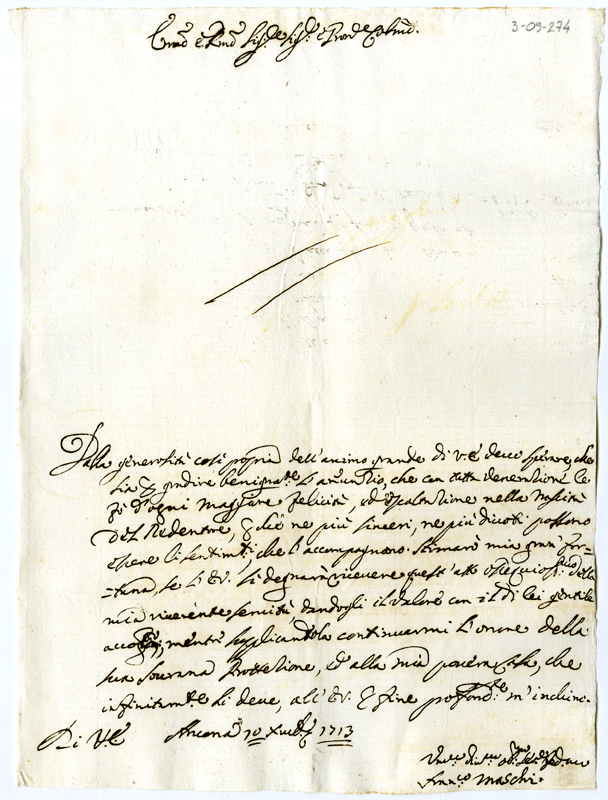 3-09-274
Em̃o e Rmo Sig.re Sig.r e Pron.e Colmo.
Dalla generosità così propria dell'animo grande di V.E. devo sperare, che
sia per gradire benignam.te l'annuntio, che con tutta devotione le
fò d'ogni maggiore felicità, ed esaltatione nella nascità
Del Redentore, che ne più sinceri, ne più divoti possono
essere li sentim.ti, che l'accompagnano. Stimarò mia gran for-
-tuna, se l'E.V. si degnarà ricevere quest'atto ossequiosis.mo della
mia riverente servitù, dandogli il valore con il di lei gentile
mentre supplicandola continuarmi l'onore della
sua sovrana Protettione, ed alla mia povera Casa, che
infinitam.te li deve, all'E.V. per fine profond.te m'inchino.
Di V.E. Ancona 10 Xmbre 1713
Fran.co Maschi.